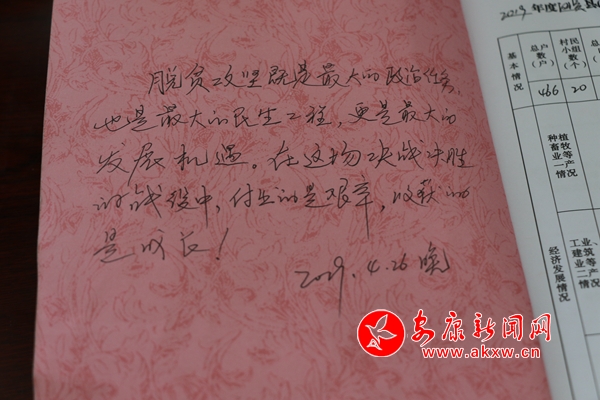 脱贫攻坚既是最大的政治任务,
也是最大的民生工程,更是最大的
发展机遇。在这场决战决胜
的战役中,付出的是艰辛,收获的
是成长!
2019.4.26晚
2019年度
基本情况
总户数(户)
村民小组数(个)
466
20
种植畜牧业等一产情况
经济发展情况
工业、建筑业等二产情况
安康新闻网
www.akxw.cn